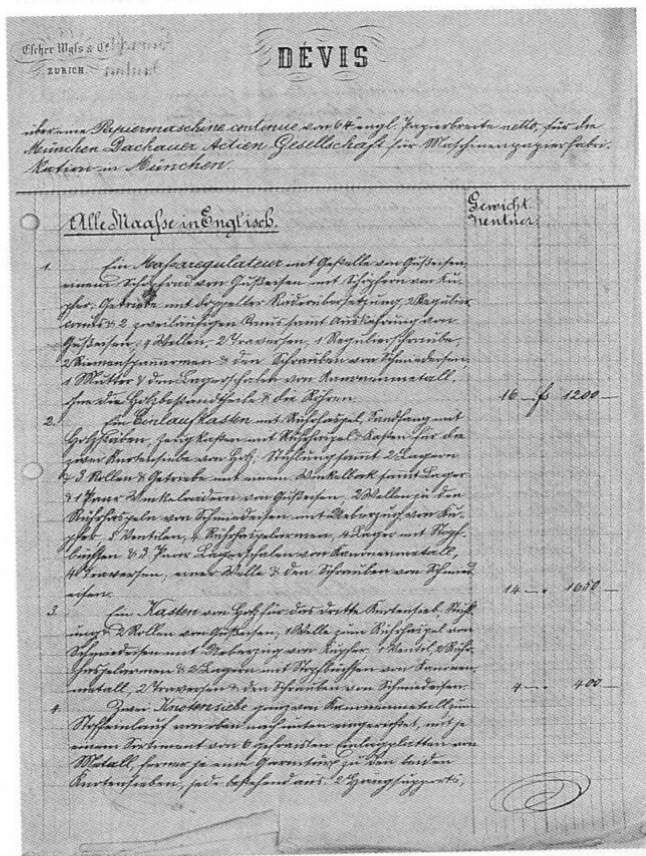 Escher Wyss & Cº
ZURICH
DÉVIS
über eine Papiermaschine continue von 64" engl. Papierbreite netto, für die
München Dachauer Actien Gesellschaft für Maschinenpapierfabri-
kation in München.
Alle Maaße in Englisch.
Gewicht
Zentner
1. Ein Masseregulateur mit Gestelle von Gußeisen,
einem Schöpfrad von Gußeisen mit Schöpfern von Ku-
pfer, Getriebe mit doppelter Räderübersetzung, 2 Regulir-
Gußeisen, 4 Wellen, 2 Traversen, 1 Regulierschraube,
2 Riemenspannarmen & den Schrauben von Schmiedeisen,
1 Mutter & den Lagerschalen von Kanonenmetall,
ohne die Holzbestandtheile & die Röhren.
16 — f 1200 —
2. Ein Einlaufkasten mit Rührhaspel, Sandfang mit
Holzstäben, Zeugkasten mit Rührhaspel & Kasten für die
zwei Knotensiebe von Holz, Stuhlung samt 2 Lagern
& 3 Rollen & Getriebe mit einem Winkelbock samt Lager
& 1 Paar Winkelrädern von Gußeisen, 2 Wellen zu den
Rührhaspeln von Schmiedeisen mit Ueberzug von Ku-
pfer, 5 Ventilen, 4 Rührhaspelarmen, 4 Lager mit Stopf-
büchsen & 3 Paar Lagerschalen von Kanonenmetall,
4 Traversen, einer Welle & den Schrauben von Schmied-
eisen.
14 — " 1650 —
3. Ein Kasten von Holz für das dritte Knotensieb, Stuhl-
ung & 2 Rollen von Gußeisen, 1 Welle zum Rührhaspel von
Schmiedeisen mit Ueberzug von Kupfer, 1 Ventil, 2 Rühr-
haspelarmen & 2 Lagern mit Stopfbüchsen von Kanonen-
metall, 2 Traversen & den Schrauben von Schmiedeisen.
4 — " 400 —
4. Zwei Knotensiebe ganz von Kanonenmetall zum
Stoffeinlauf von oben nach unten eingerichtet, mit je
einem Sortiment von 6 gefraisten Einlagplatten von
Metall, ferner je eine Garnitur zu den beiden
Knotensieben, jede bestehend aus: 2 Hängsupports,